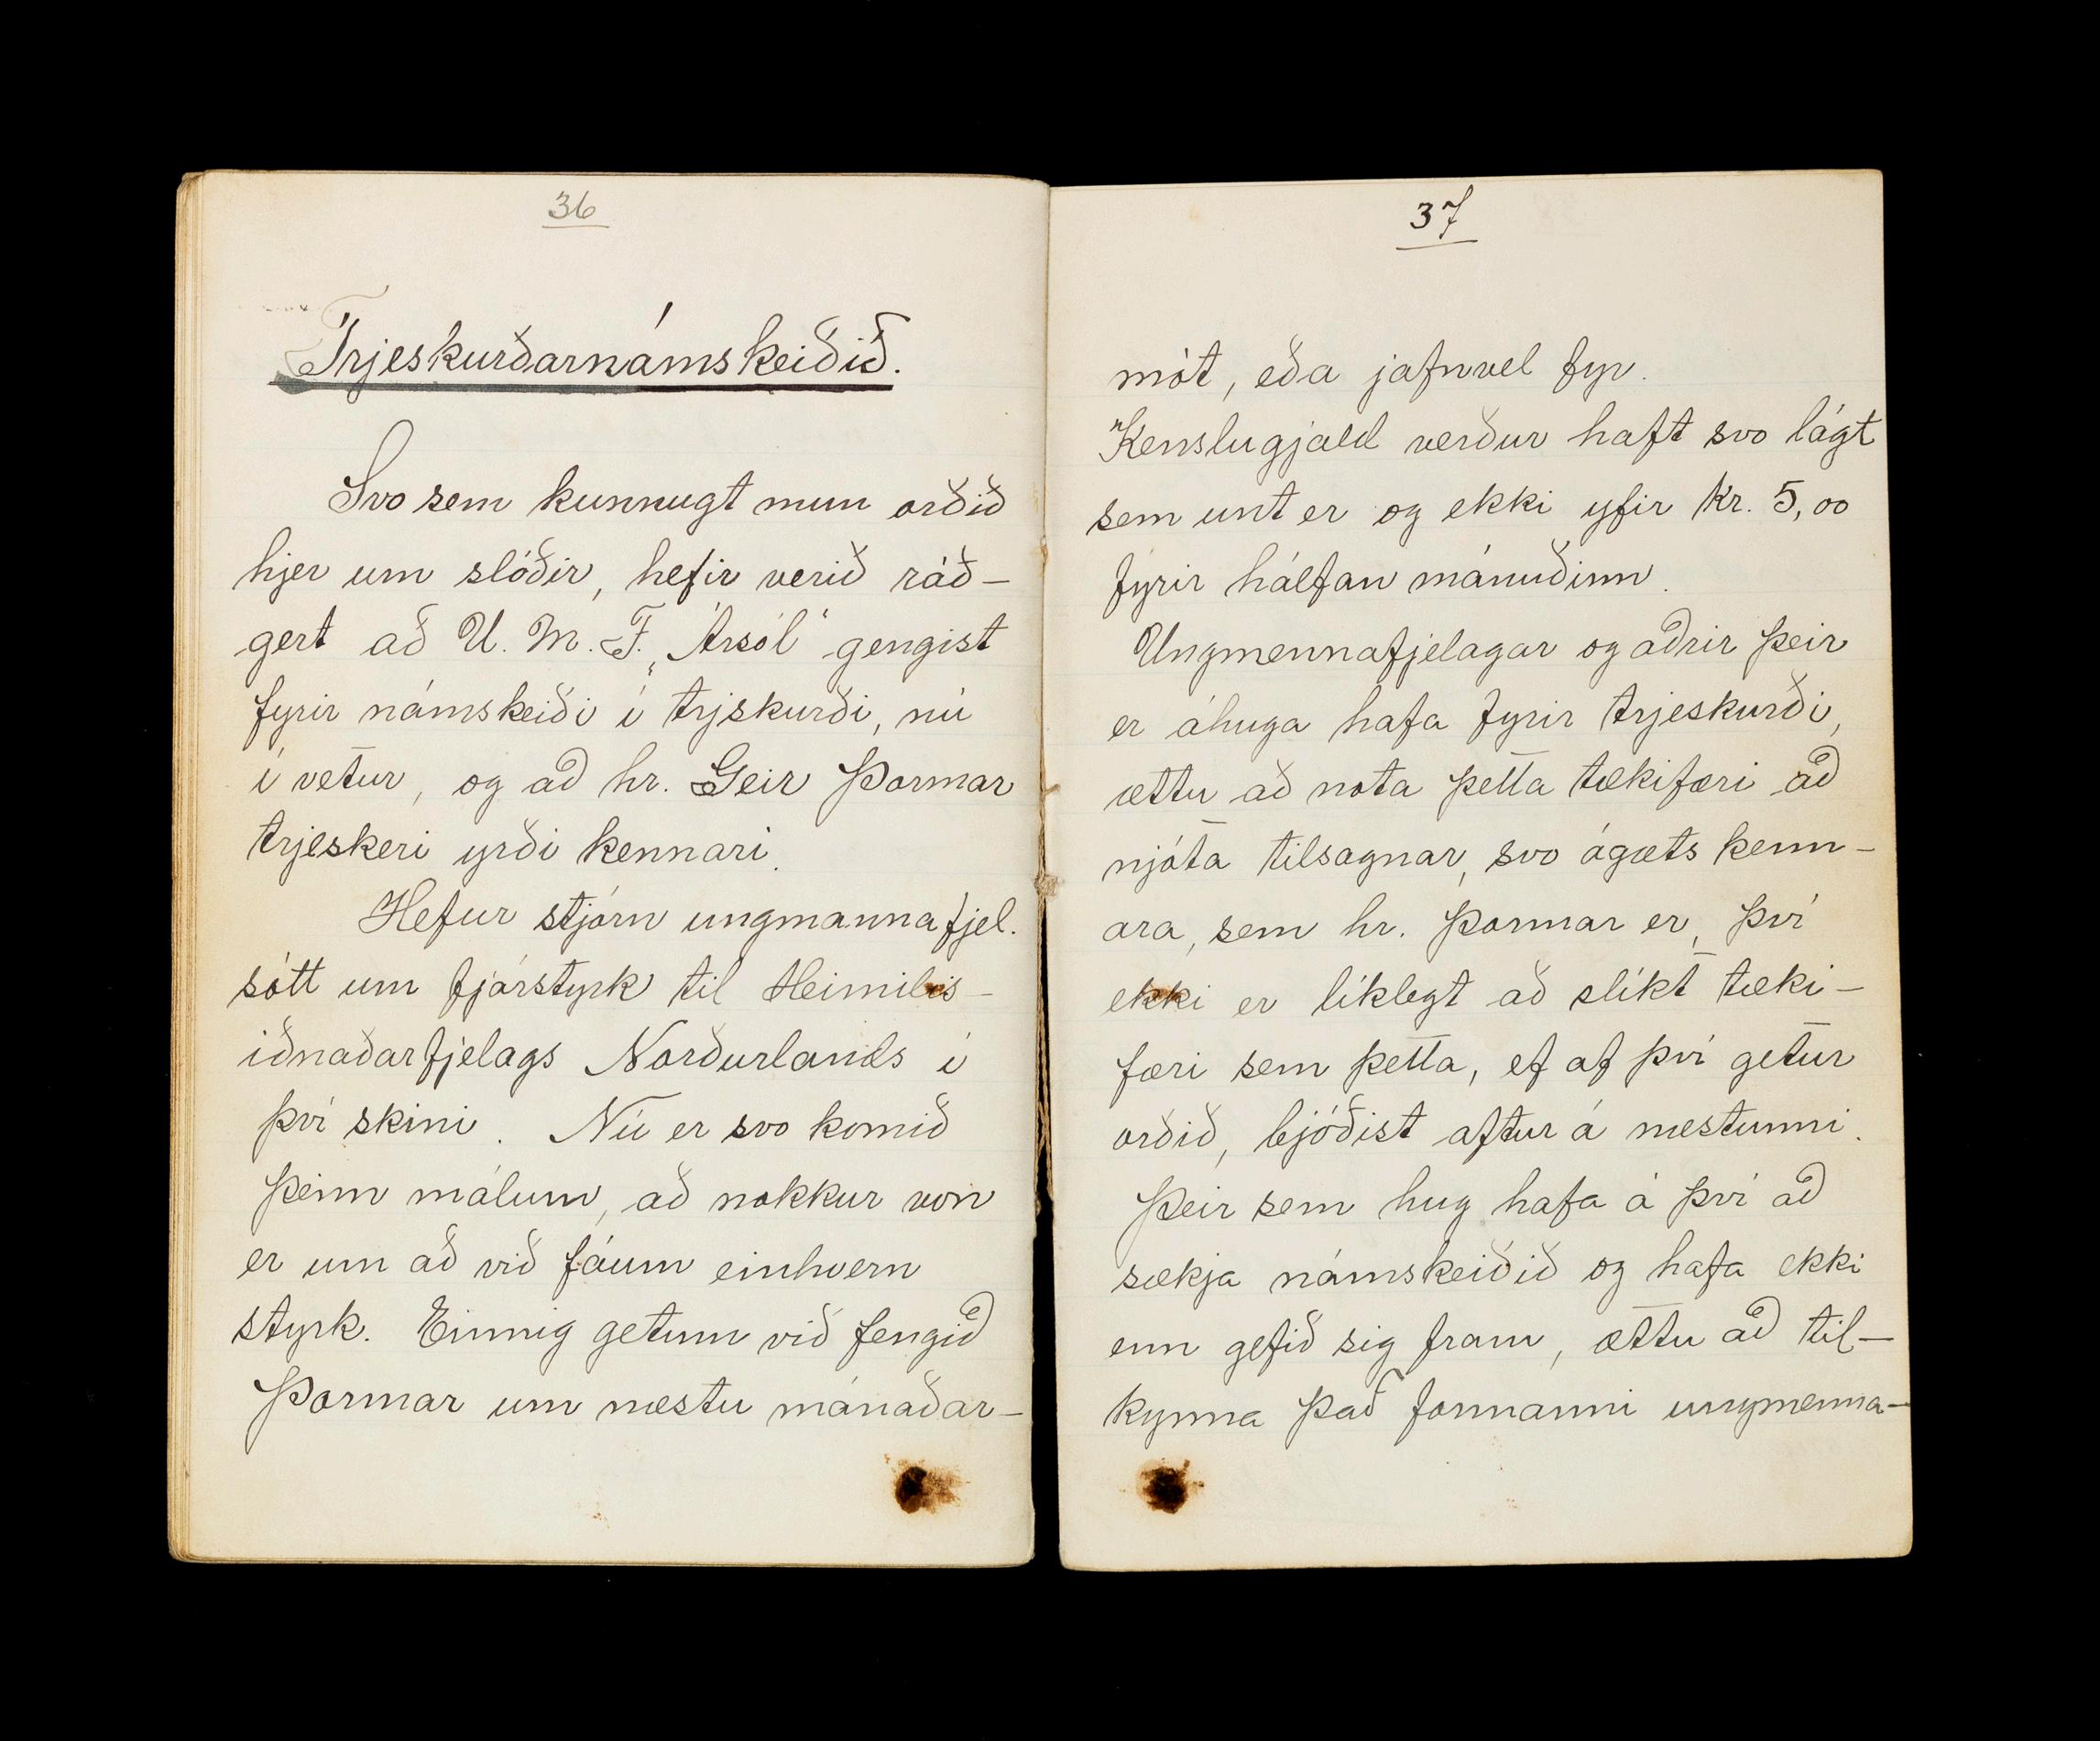 36
Trjeskurðarnámskeiðið.
Svo sem kunnugt mun orðið
hjer um slóðir, hefir verið ráð-
gert að U. M. F. „Ársól“ gengist
fyrir námskeiði í trjskurði, nú
í vetur, og að hr. Geir Þormar
trjeskeri yrði kennari.
Hefur stjórn ungmannafjel.
sótt um fjárstyrk til Heimilis-
iðnaðarfjelags Norðurlands í
því skini. Nú er svo komið
þeim málum, að nokkur von
er um að við fáum einhvern
styrk. Einnig getum við fengið
Þormar um næstu mánaðar-
37
mót, eða jafnvel fyr.
Kenslugjald verður haft svo lágt
sem unt er og ekki yfir kr. 5,00
fyrir hálfan mánuðinn.
Ungmennafjelagar og aðrir þeir
er áhuga hafa fyrir trjeskurði,
ættu að nota þetta tækifæri að
njóta tilsagnar, svo ágæts kenn-
ara, sem hr. Þormar er, því
ekki er líklegt að slíkt tæki-
færi sem þetta, ef af því getur
orðið, bjóðist aftur á næstunni.
Þeir sem hug hafa á því að
sækja námskeiðið og hafa ekki
enn gefið sig fram, ættu að til-
kynna það formanni ungmenna-